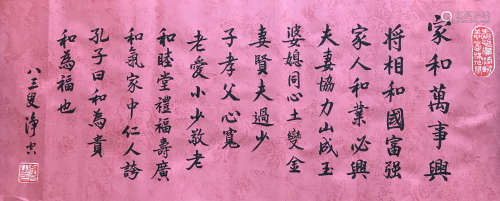 家和萬事興
將相和國富强
家人和業必興
夫妻協力山成玉
婆媳同心土變金
妻賢夫過少
子孝父心寬
老愛小少敬老
和睦堂禮福壽廣
和氣家中仁人誇
孔子曰和為貴
和為福也
八三叟淨空